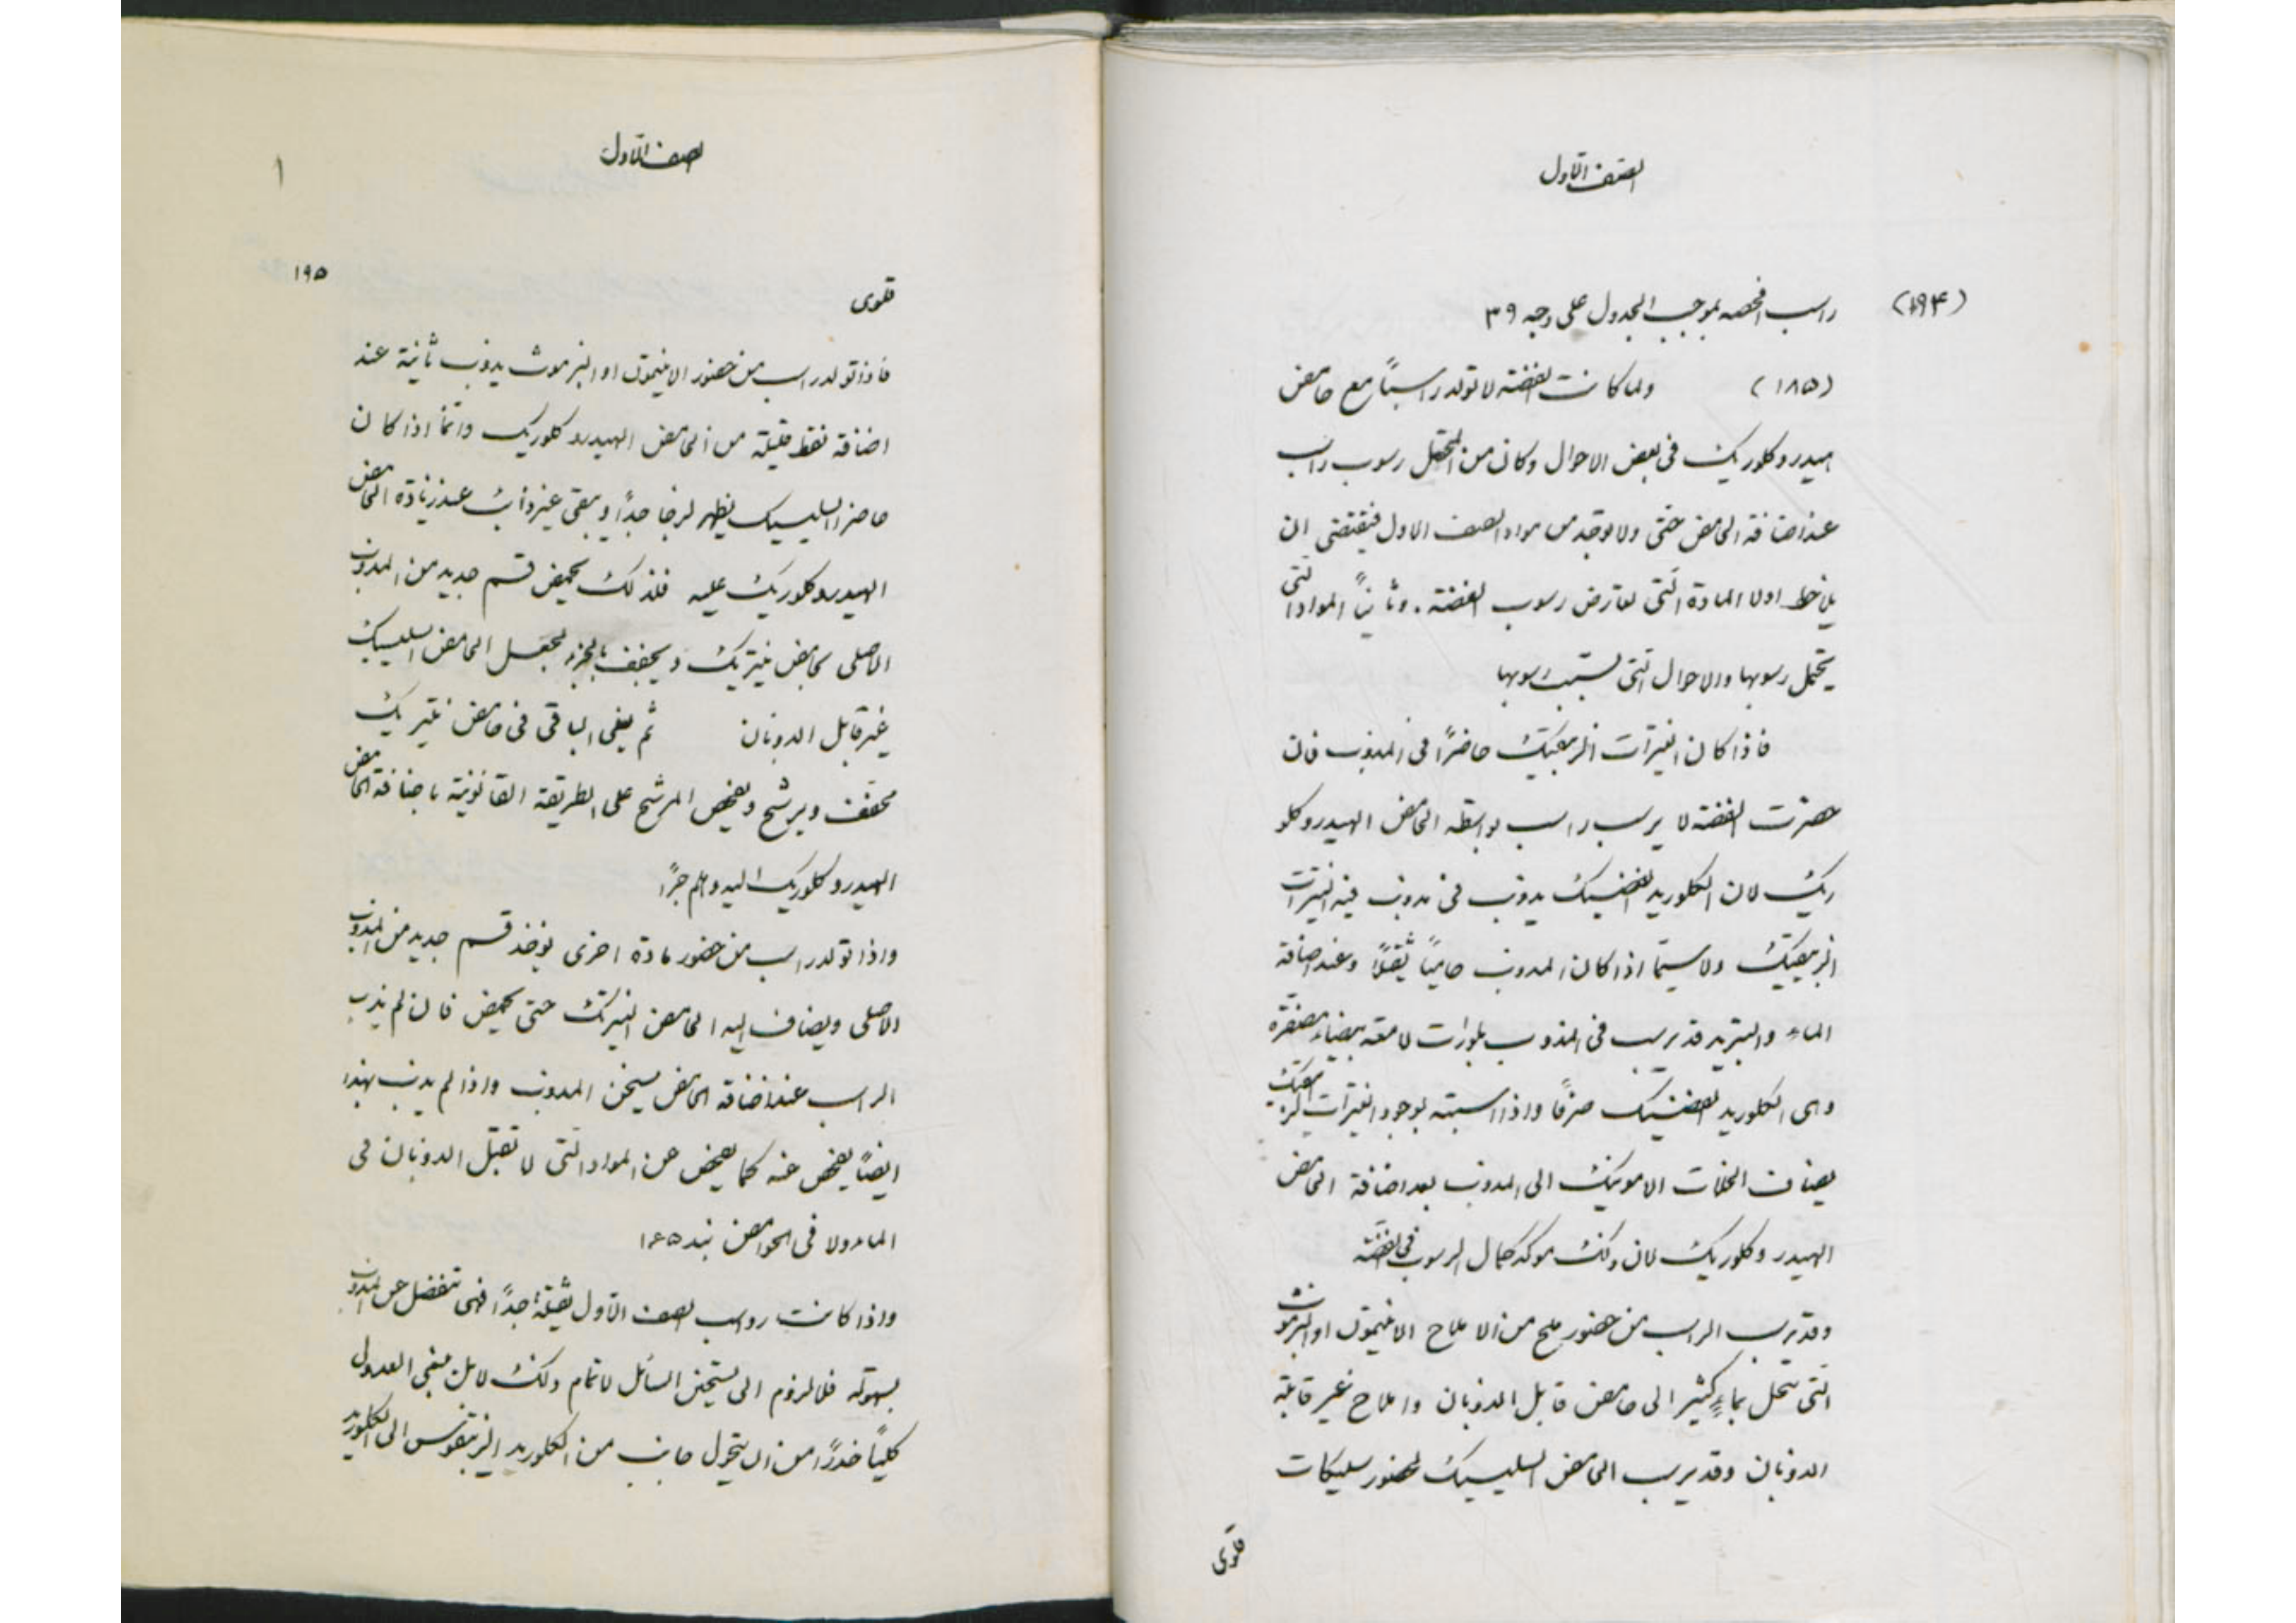 الصف الاول
(١٩۴)
راسب افحصه بموجب الجدول على وجه ٣٩
(١٨۵) ولما كانت الفضة لا تولد راسبًا مع حامض
هيدروكلوريك فى بعض الاحوال وكان من المحتمل رسوب راسب
عند اضافة الحامض حتى ولا يوجد من مواد الصف الاول فيقتضى ان
يلاحظ اولا المادة التى تعارض رسوب الفضة. وثانيًا المواد التى
يحتمل رسوبها والاحوال التى تسبب رسوبها
فاذا كان النيترات الزيبقيك حاضرًا فى المذوب فان
حضرت الفضة لا يرسب راسب بواسطة الحامض الهيدروكلو
ريك لان الكلوريد الفضيك يذوب فى مذوب فيه النيترات
الزيبقيك ولا سيّما اذا كان المذوب حاميًا ثقيلًا وعند اضافة
الماء والتبريد قد يرسب فى المذوب بلورات لامعة بيضاء مصفرة
وهى الكلوريد الفضيك صرفًا واذا اشتبه بوجود النيترات الزيبقيك
يضاف الخلات الامونيك الى المذوب بعد اضافة الحامض
الهيدروكلوريك لان ذلك موكد كمال الرسوب فى الفضة
وقد يرسب الراسب من حضور ملح من الاملاح الانتيمون او البزموث
التى تنحل بماءٍ كثير الى حامض قابل الذوبان واملاح غير قابلة
الذوبان وقد يرسب الحامض السليسيك لحضور سليكات
قلوى
الصف الاول
١٩۵
قلوى
فاذا تولد راسب من حضور الانتيمون او البزموث يذوب ثانية عند
اضافة نقط قليلة من الحامض الهيدروكلوريك وانما اذا كان
حاضرًا السليسيك يظهر لزجا جدًا ويبقى غير ذائب عند زيادة الحامض
الهيدروكلوريك عليه فلذلك يحمض قسم جديد من المذوب
الاصلى بحامض نيتريك ويجفف بالحرارة لجعل الحامض السليسيك
غير قابل الذوبان ثم يغلى الباقى فى حامض نيتريك
مخفف ويرشح ويفحص المرشح على الطريقة القانونية باضافة الحامض
الهيدروكلوريك اليه وهلم جرًا
واذا تولد راسب من حضور مادة اخرى يوخذ قسم جديد من المذوب
الاصلى ويضاف اليه الحامض النيتريك حتى يحمض فان لم يذب
الراسب عند اضافة الحامض يسخن المذوب واذا لم يذب بهذا
ايضًا يفحص عنه كما يفحص عن المواد التى لا تقبل الذوبان فى
الماء ولا فى الحوامض نبذ ١۶۵
واذا كانت رواسب الصف الاول ثقيلة جدًا فهى تنفصل عن المذوب
بسهولة فلا لزوم الى تسخين السائل لاتمام ذلك لا بل ينبغى العدول
كليًا حذرًا من ان يتحول جانب من الكلوريد الزيبقوس الى الكلوريد